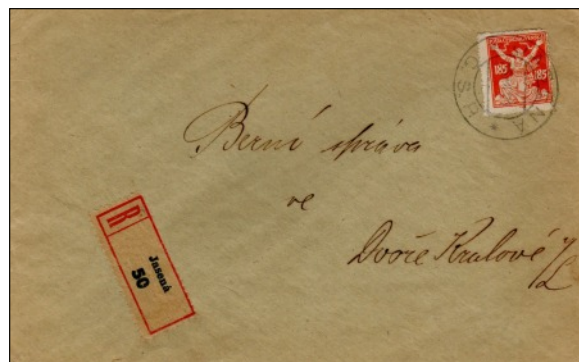 185 185
Berní správa
ve
Dvoře Králové n/L
R
Jasená
50